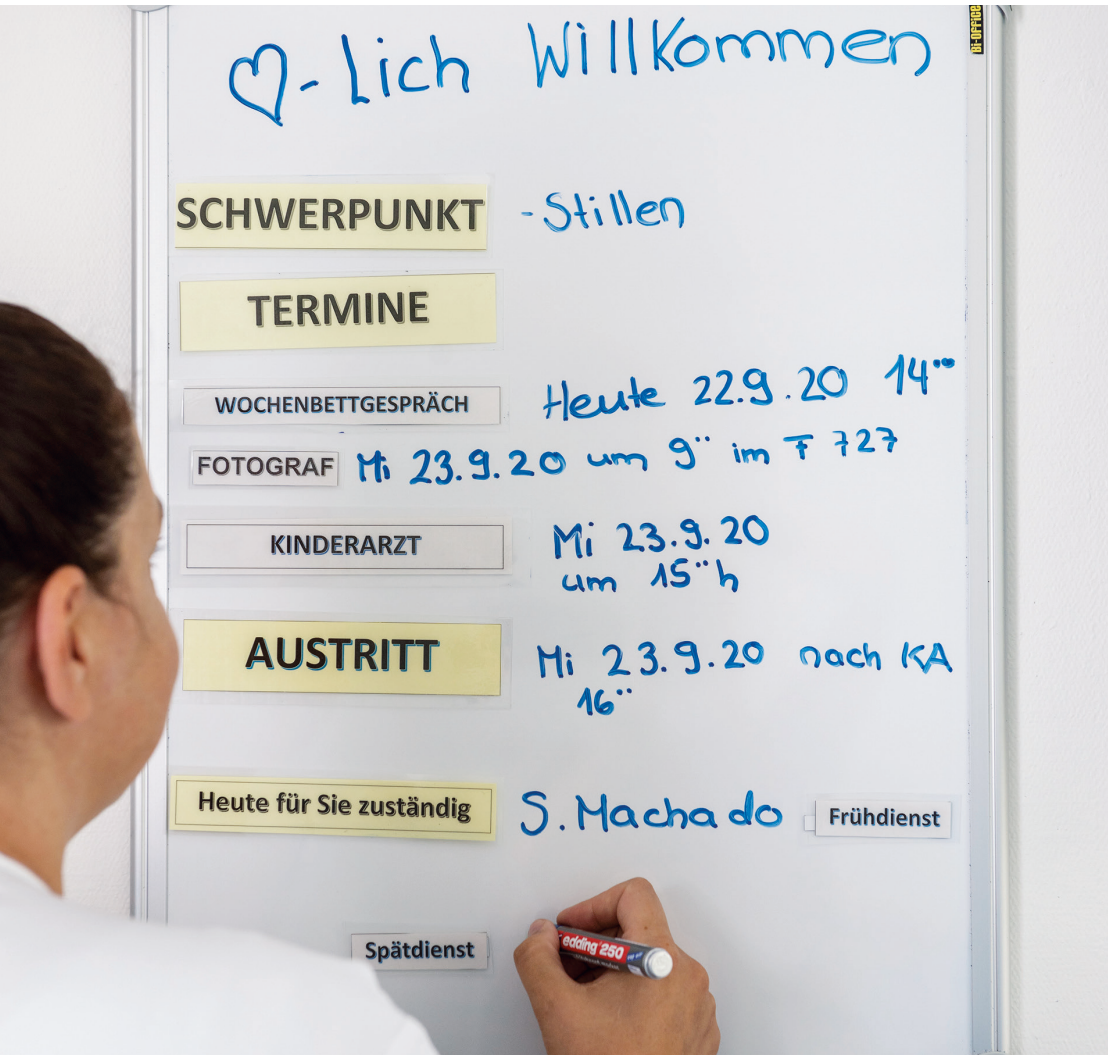 ♡-lich Willkommen
Bi-OFFICE
SCHWERPUNKT - Stillen
TERMINE
WOCHENBETTGESPRÄCH Heute 22.9.20 14°°
FOTOGRAF Mi 23.9.20 um 9°° im F 727
KINDERARZT Mi 23.9.20
um 15°° h
AUSTRITT Mi 23.9.20 nach KA
16°°
Heute für Sie zuständig S. Machado Frühdienst
Spätdienst
edding 250